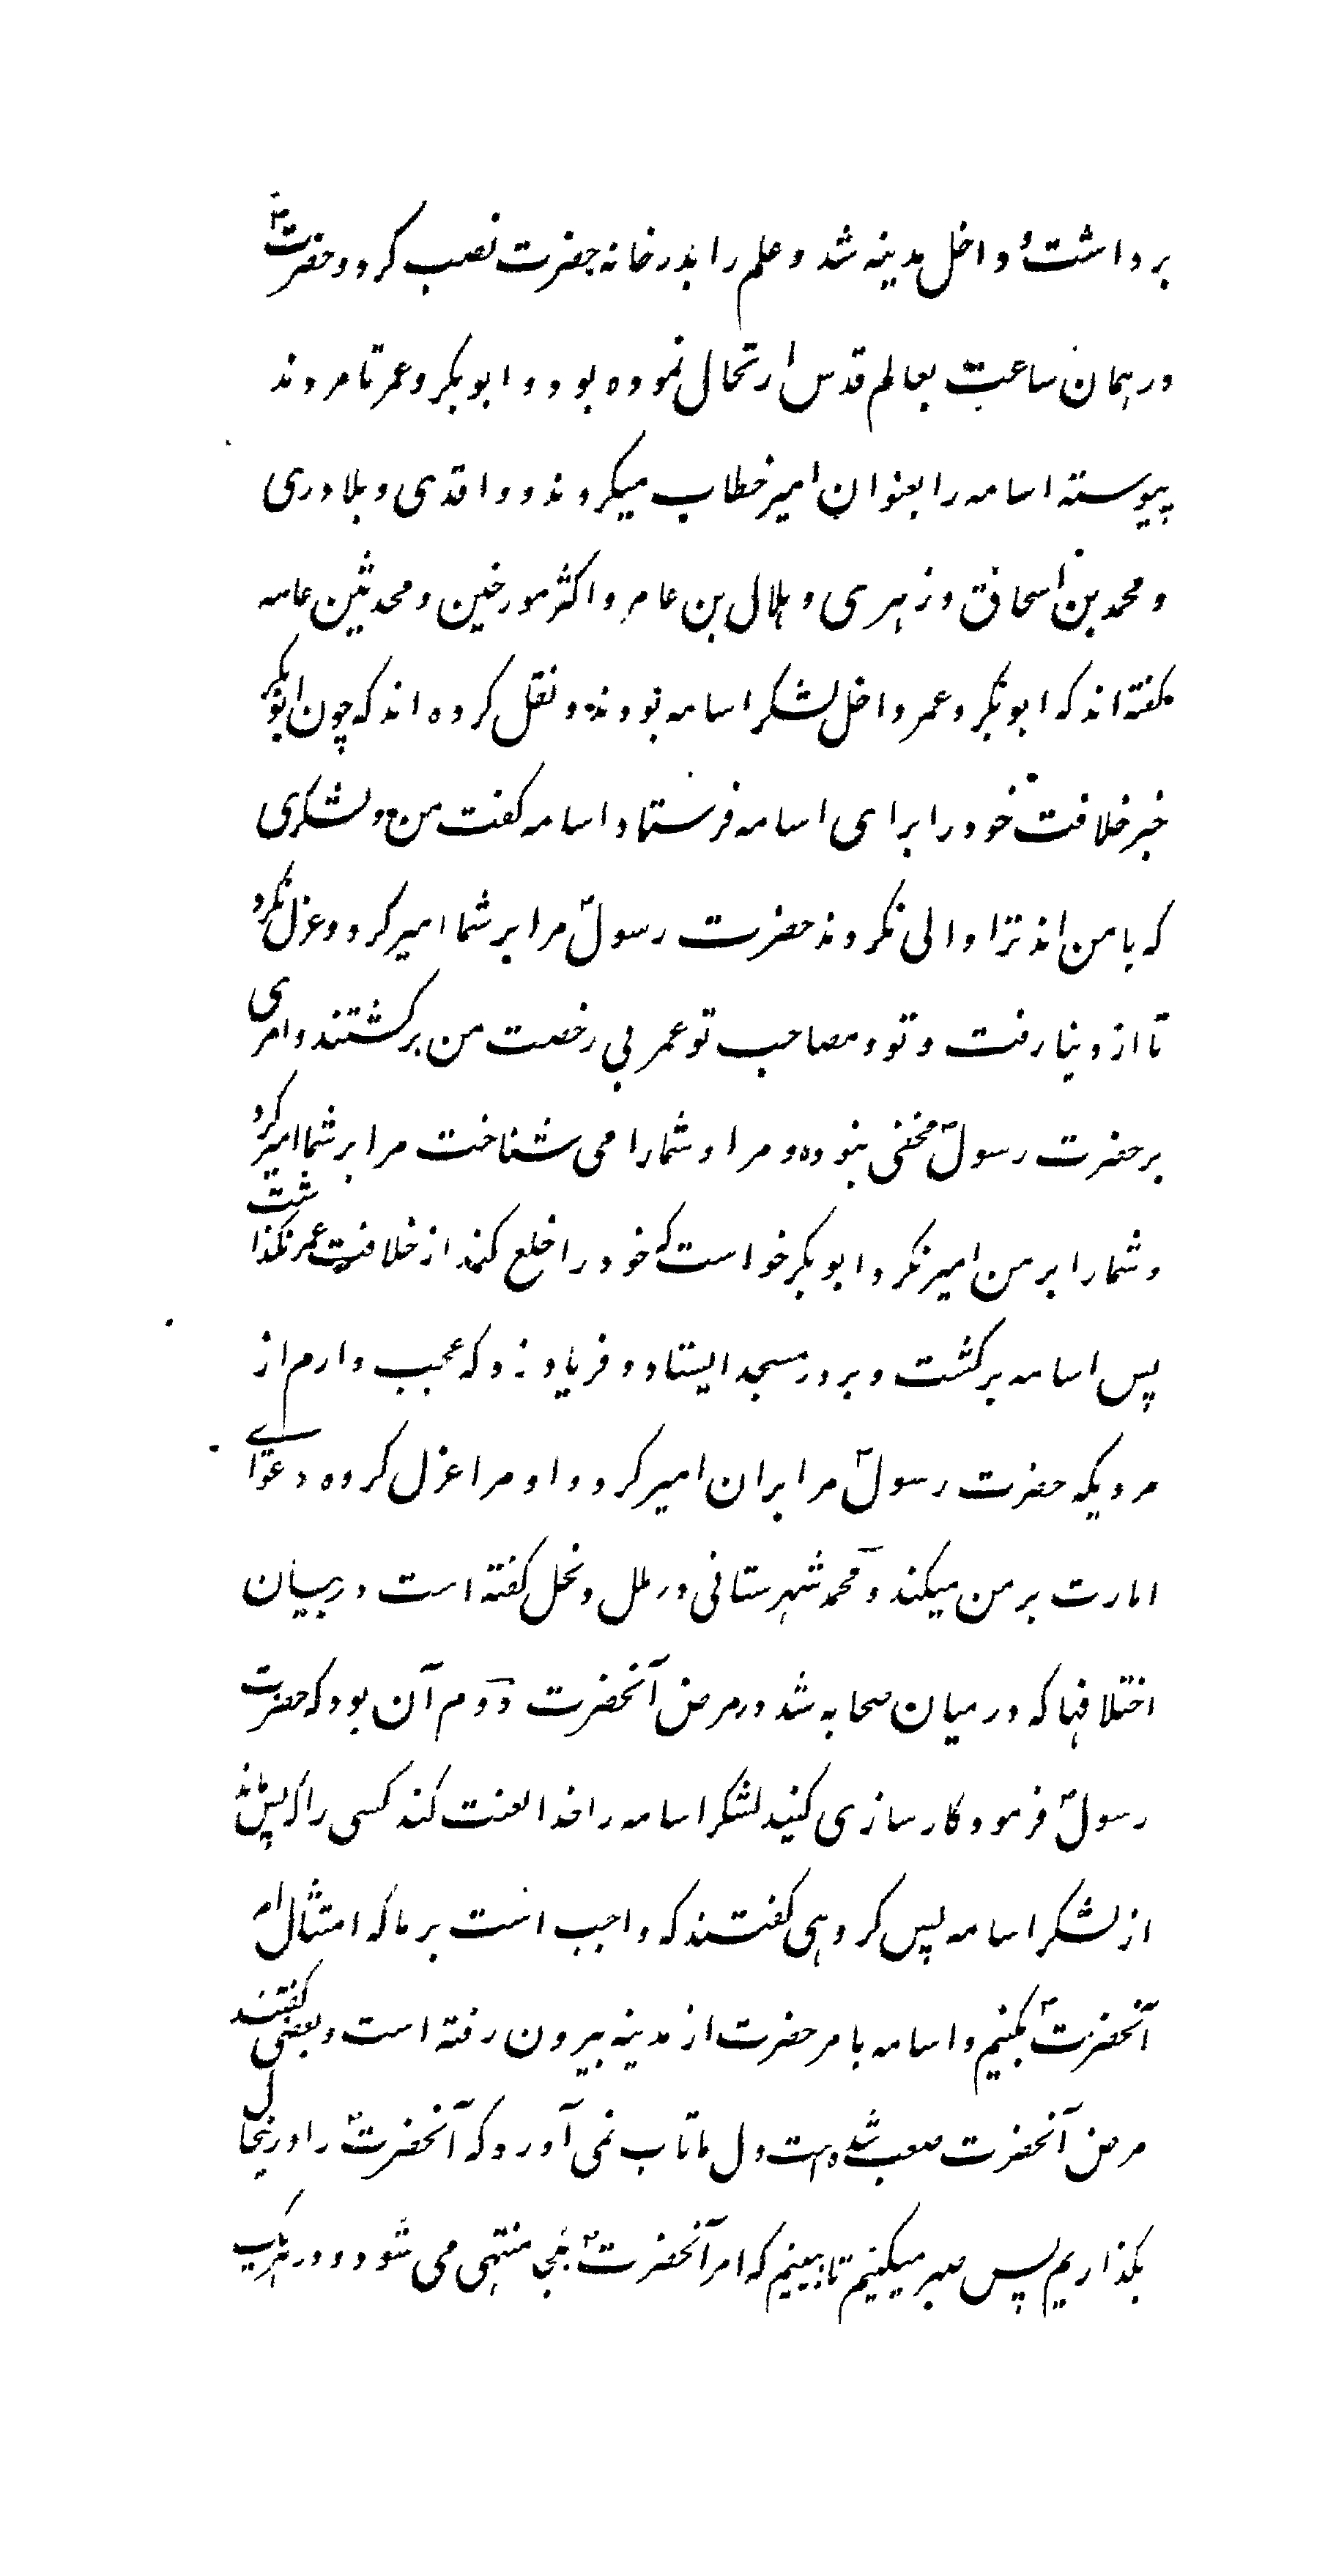 برداشته و داخل مدینه شد و علم را بدر خانه حضرت نصب کرد و حضرت
در همان ساعت بعالم قدس ارتحال نموده بود و ابوبکر و عمر تا مردند
پیوسته اسامه را بعنوان امیر خطاب میکردند و واقدی و بلادری
و محمد بن اسحاق و زهری و هلال بن عامر و اکثر مورخین و محدثین عامه
گفته اند که ابوبکر و عمر داخل لشکر اسامه بودند و نقل کرده اند که چون ابوبکر
خبر خلافت خود را برای اسامه فرستاد اسامه گفت من و لشکری
که با من اند ترا والی نکردند حضرت رسولؐ مرا بر شما امیر کرد و عزل نکرد
تا از دنیا رفت و تو و مصاحب تو عمر بی رخصت من برگشتند و امری
بر حضرت رسولؐ مخفی نبوده و مرا و شما را می شناخت مرا بر شما امیر کرد
و شما را بر من امیر نکرد ابوبکر خواست که خود را خلع کند از خلافت عمر نگذاشت
پس اسامه برگشت و بر در مسجد ایستاد و فریاد زد که عجب دارم از
مردیکه حضرت رسولؐ مرا بر ان امیر کرد و او مرا عزل کرده دعوای
امارت بر من میکند و محمد شهرستانی در ملل و نحل گفته است در بیان
اختلافها که در میان صحابه شد در مرض آنحضرت دوم آن بود که حضرت
رسولؐ فرمود کارسازی کنید لشکر اسامه را خدا لعنت کند کسی را که پس ماند
از لشکر اسامه پس گروهی گفتند که واجب است بر ما که امتثال امر
آنحضرتؐ بکنیم و اسامه بامر حضرت از مدینه بیرون رفته است و بعضی گفتند
مرض آنحضرت صعب شده است دل ما تاب نمی آورد که آنحضرتؐ را در اینحال
بگذاریم پس صبر میکنیم تا ببینیم که امر آنحضرتؐ بکجا منتهی می شود و در